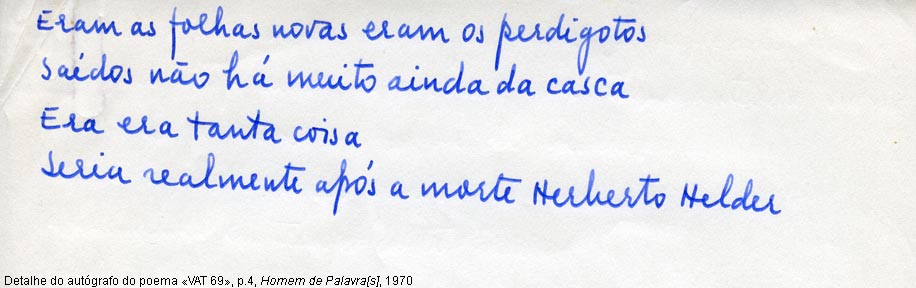 Eram as folhas novas eram os perdigotos
Saídos não há muito ainda da casca
Era era tanta coisa
Seria realmente após a morte Herberto Helder
Detalhe do autógrafo do poema «VAT 69», p.4, Homem de Palavra[s], 1970